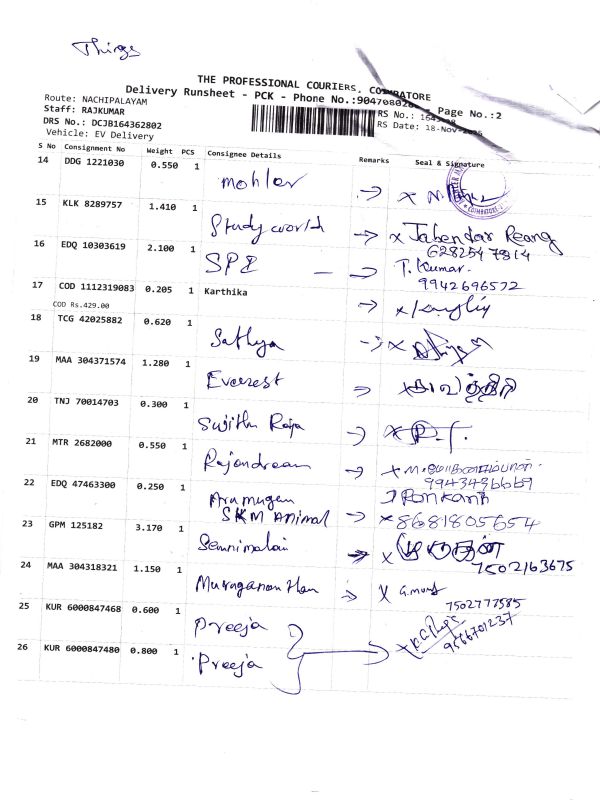 Things
THE PROFESSIONAL COURIERS, COIMBATORE
Delivery Runsheet - PCK - Phone No.:904708028 Page No.:2
Route: NACHIPALAYAM
Staff: RAJKUMAR
RS No.:
DRS No.: DCJB164362802
RS Date: 18-Nov-
Vehicle: EV Delivery
S No Consignment No Weight PCS Consignee Details Remarks Seal & Signature
14 DDG 1221030 0.550 1 mohler
15 KLK 8289757 1.410 1 Study world Jabendar Reang
6282547814
16 EDQ 10303619 2.100 1 SPI T. Kumar.
9942696572
17 COD 1112319083 0.205 1 Karthika
COD Rs.429.00
18 TCG 42025882 0.620 1 Sathya
19 MAA 304371574 1.280 1 Everest
20 TNJ 70014703 0.300 1 Sujith Raja
21 MTR 2682000 0.550 1 Rajendran
9943436669
22 EDQ 47463300 0.250 1 Arumugam
SKM Animal 8681805654
23 GPM 125182 3.170 1 Sennimalai
7502163675
24 MAA 304318321 1.150 1 Murugananthan
7502777585
25 KUR 6000847468 0.600 1 Preeja
9566701237
26 KUR 6000847480 0.800 1 Preeja